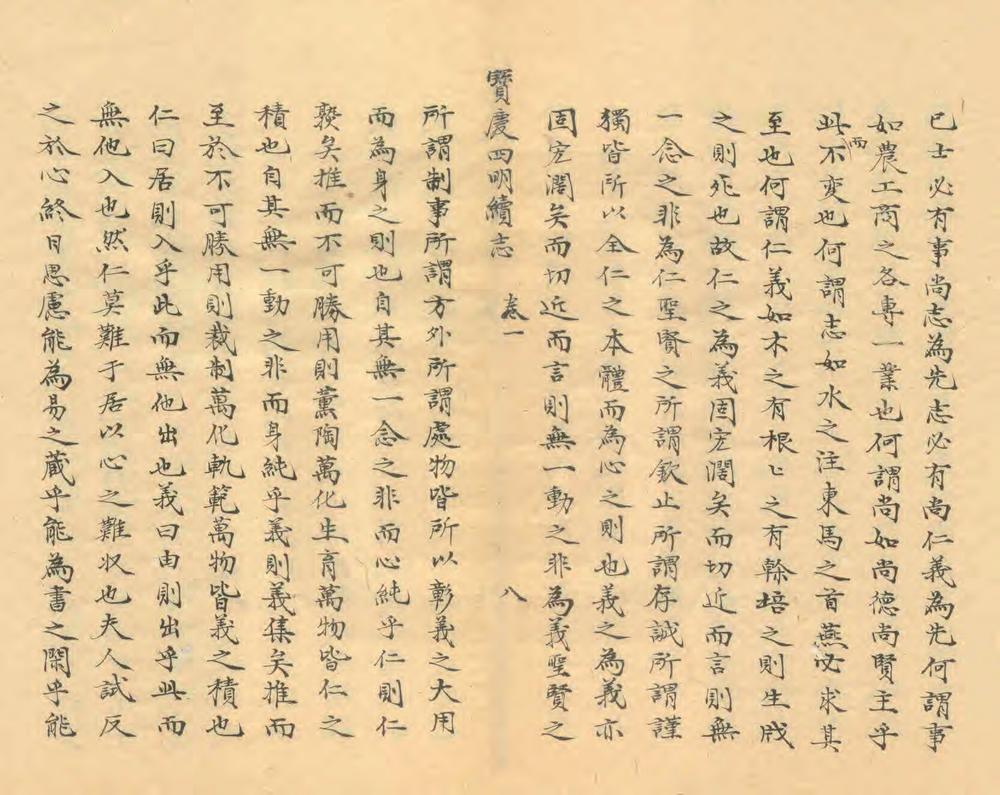 已士必有事尚志為先志必有尚仁義為先何謂事
如農工商之各專一業也何謂尚如尚德尚賢主乎
此而不変也何謂志如水之注東馬之首燕必求其
至也何謂仁義如木之有根匕之有榦培之則生戕
之則死也故仁之為義固宏濶矣而切近而言則無
一念之非為仁聖賢之所謂欽止所謂存誠所謂謹
獨皆所以全仁之本體而為心之則也義之為義亦
固宏濶矣而切近而言則無一動之非為義聖賢之
寶慶四明續志 卷一 八
所謂制事所謂方外所謂處物皆所以彰義之大用
而為身之則也自其無一念之非而心純乎仁則仁
槷矣推而不可勝用則薰陶萬化生育萬物皆仁之
積也自其無一動之非而身純乎義則義集矣推而
至於不可勝用則裁制萬化軌範萬物皆義之積也
仁曰居則入乎此而無他出也義曰由則出乎此而
無他入也然仁莫難于居以心之難収也夫人試反
之於心終日思慮能為易之蔵乎能為書之閑乎能